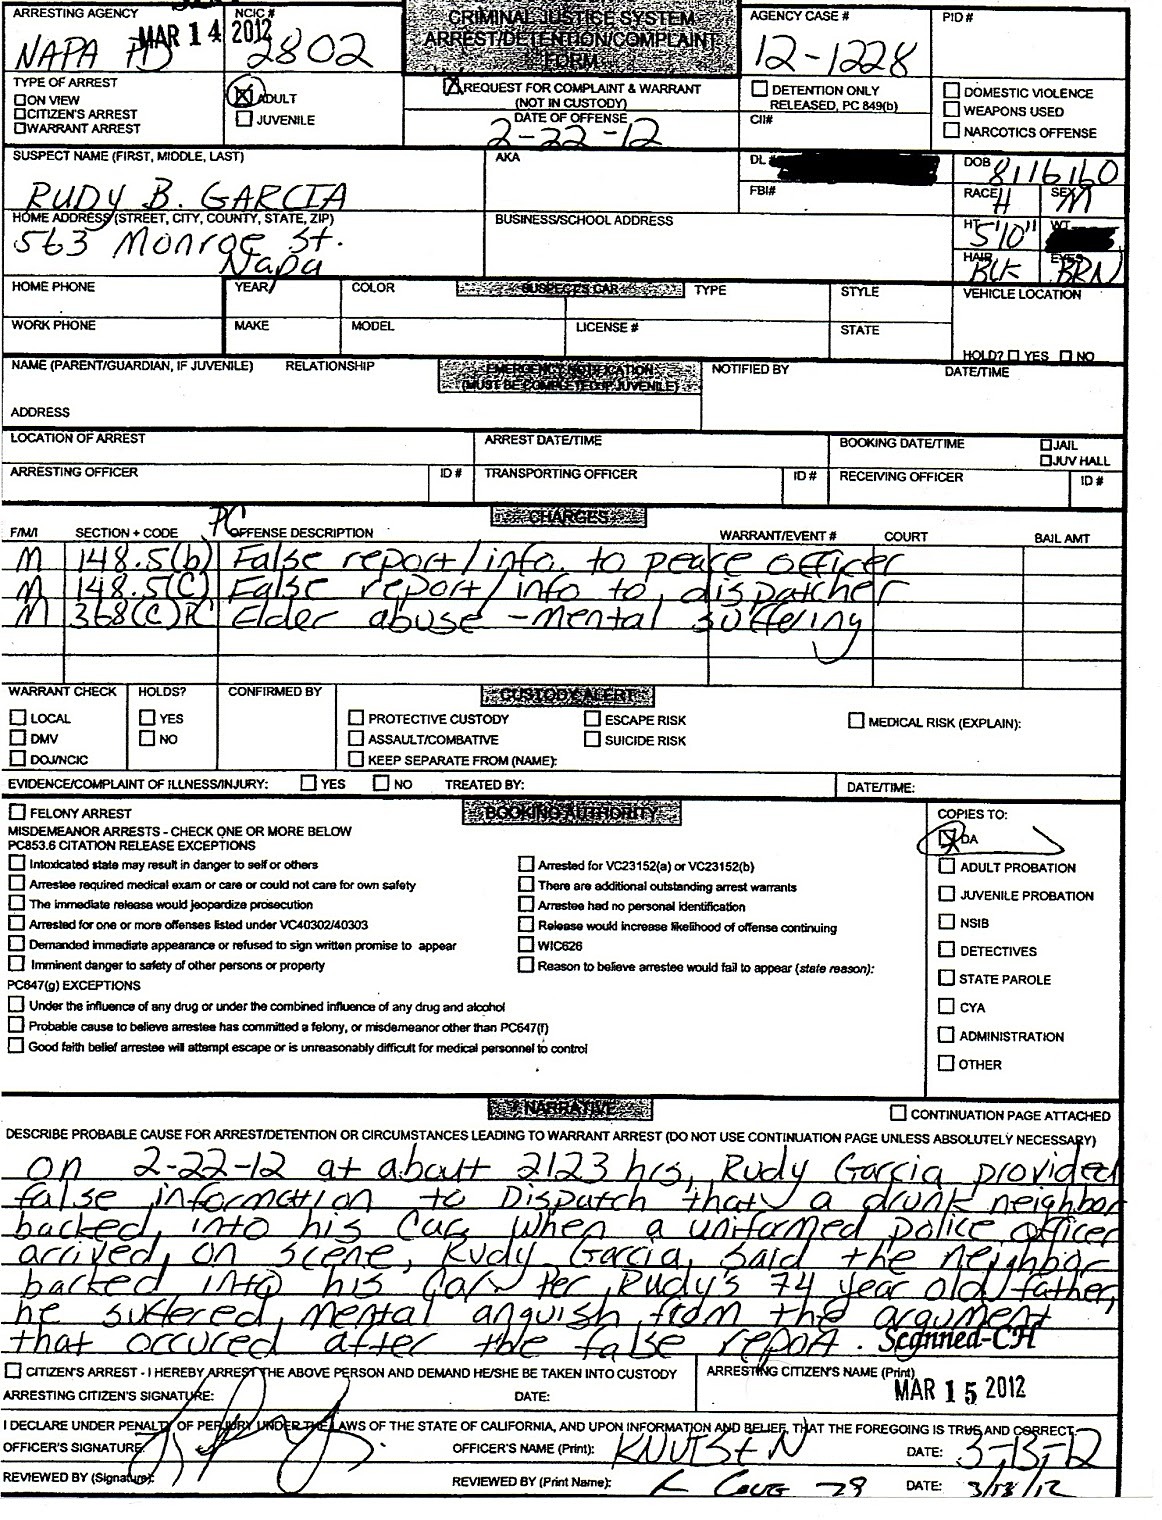 ARRESTING AGENCY
NAPA PD
MAR 14 2012
NCIC #
2802
CRIMINAL JUSTICE SYSTEM
ARREST/DETENTION/COMPLAINT
FORM
AGENCY CASE #
12-1228
PID#
TYPE OF ARREST
ON VIEW
CITIZEN'S ARREST
WARRANT ARREST
ADULT
JUVENILE
REQUEST FOR COMPLAINT & WARRANT
(NOT IN CUSTODY)
DATE OF OFFENSE
2-22-12
DETENTION ONLY
RELEASED, PC 849(b)
CII#
DOMESTIC VIOLENCE
WEAPONS USED
NARCOTICS OFFENSE
SUSPECT NAME (FIRST, MIDDLE, LAST)
RUDY B. GARCIA
AKA
DL #
FBI#
DOB
8/16/60
RACE
H
SEX
M
HOME ADDRESS (STREET, CITY, COUNTY, STATE, ZIP)
563 Monroe St.
Napa
BUSINESS/SCHOOL ADDRESS
HT
5'10"
WT
HAIR
BLK
EYES
BRN
HOME PHONE
YEAR
COLOR
SUSPECTS CAR
TYPE
STYLE
VEHICLE LOCATION
WORK PHONE
MAKE
MODEL
LICENSE #
STATE
HOLD? YES NO
NAME (PARENT/GUARDIAN, IF JUVENILE) RELATIONSHIP
EMERGENCY NOTIFICATION
(MUST BE COMPLETED IF JUVENILE)
NOTIFIED BY
DATE/TIME
ADDRESS
LOCATION OF ARREST
ARREST DATE/TIME
BOOKING DATE/TIME
JAIL
JUV HALL
ARRESTING OFFICER
ID #
TRANSPORTING OFFICER
ID #
RECEIVING OFFICER
ID #
CHARGES
F/M/I SECTION + CODE PC OFFENSE DESCRIPTION WARRANT/EVENT # COURT BAIL AMT
M 148.5(b) False report/info. to peace officer
M 148.5(C) False report/info to dispatcher
M 368(C)PC Elder abuse - mental suffering
WARRANT CHECK
LOCAL
DMV
DOJ/NCIC
HOLDS?
YES
NO
CONFIRMED BY
CUSTODY ALERT
PROTECTIVE CUSTODY
ASSAULT/COMBATIVE
KEEP SEPARATE FROM (NAME):
ESCAPE RISK
SUICIDE RISK
MEDICAL RISK (EXPLAIN):
EVIDENCE/COMPLAINT OF ILLNESS/INJURY: YES NO TREATED BY:
DATE/TIME:
FELONY ARREST
BOOKING AUTHORITY
MISDEMEANOR ARRESTS - CHECK ONE OR MORE BELOW
PC853.6 CITATION RELEASE EXCEPTIONS
Intoxicated state may result in danger to self or others
Arrestee required medical exam or care or could not care for own safety
The immediate release would jeopardize prosecution
Arrested for one or more offenses listed under VC40302/40303
Demanded immediate appearance or refused to sign written promise to appear
Imminent danger to safety of other persons or property
Arrested for VC23152(a) or VC23152(b)
There are additional outstanding arrest warrants
Arrestee had no personal identification
Release would increase likelihood of offense continuing
WIC626
Reason to believe arrestee would fail to appear (state reason):
PC647(g) EXCEPTIONS
Under the influence of any drug or under the combined influence of any drug and alcohol
Probable cause to believe arrestee has committed a felony, or misdemeanor other than PC647(f)
Good faith belief arrestee will attempt escape or is unreasonably difficult for medical personnel to control
COPIES TO:
DA
ADULT PROBATION
JUVENILE PROBATION
NSIB
DETECTIVES
STATE PAROLE
CYA
ADMINISTRATION
OTHER
NARRATIVE
CONTINUATION PAGE ATTACHED
DESCRIBE PROBABLE CAUSE FOR ARREST/DETENTION OR CIRCUMSTANCES LEADING TO WARRANT ARREST (DO NOT USE CONTINUATION PAGE UNLESS ABSOLUTELY NECESSARY)
On 2-22-12 at about 2123 hrs, Rudy Garcia provided
false information to Dispatch that a drunk neighbor
backed into his car. When a uniformed police officer
arrived on scene, Rudy Garcia said the neighbor
backed into his car. Per Rudy's 74 year old father,
he suffered mental anguish from the argument
that occured after the false report.
Scanned-CH
CITIZEN'S ARREST - I HEREBY ARREST THE ABOVE PERSON AND DEMAND HE/SHE BE TAKEN INTO CUSTODY
ARRESTING CITIZEN'S NAME (Print)
MAR 15 2012
ARRESTING CITIZEN'S SIGNATURE: DATE:
I DECLARE UNDER PENALTY OF PERJURY UNDER THE LAWS OF THE STATE OF CALIFORNIA, AND UPON INFORMATION AND BELIEF, THAT THE FOREGOING IS TRUE AND CORRECT.
OFFICER'S SIGNATURE OFFICER'S NAME (Print): KNUTSEN DATE: 3-13-12
REVIEWED BY (Signature): REVIEWED BY (Print Name): DATE: 3/13/12